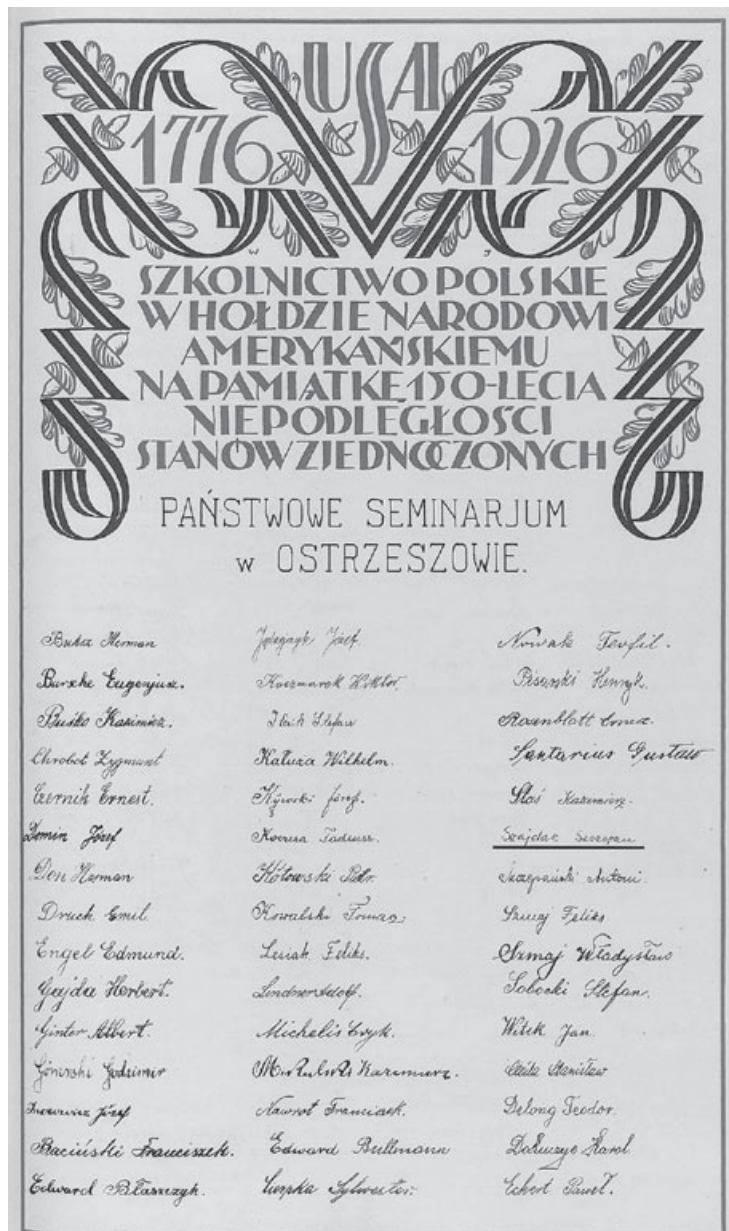 USA
1776 1926
SZKOLNICTWO POLSKIE
W HOŁDZIE NARODOWI
AMERYKAŃSKIEMU
NA PAMIATKE 150-LECIA
NIEPODLEGŁOSCI
STANÓW ZJEDNOCZONYCH
PAŃSTWOWE SEMINARJUM
w OSTRZESZOWIE.
Herman
Barzke Eugenjusz.
Buśko Kazimierz.
Chrobot Zygmunt
Czernik Ernest.
Domin Józef
Don Herman
Druch Emil
Engel Edmund.
Gajda Herbert.
Ginter Albert.
Godzimir
Józef
Baciński Franciszek.
Edward Błaszczyk.
Józef.
Kaczmarek Wiktor.
Stefan
Kałuża Wilhelm.
Józef.
Tadeusz.
Kotowski Piotr.
Kowalski Tomasz
Lesiak Feliks.
Lindner Adolf.
Michelis Eryk.
Kazimierz.
Nawrot Franciszek.
Edward Bullmann
Cierpka Sylwester.
Nowak Teofil.
Pisarski Henryk.
Rosenblatt
Santarius Gustaw
Staś Kazimierz.
Szajdak Szczepan
Szczepański Antoni.
Szmaj Feliks
Szmaj Władysław
Sobocki Stefan.
Witek Jan.
Stanisław
Delong Teodor.
Karol
Eckert Paweł.